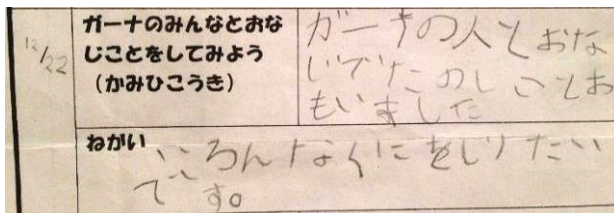 12/22
ガーナのみんなとおな
じことをしてみよう
(かみひこうき)
ガーナの人とおな
じでたのしいことお
もいました
ねがい
いろんなくにをしりたい
です。